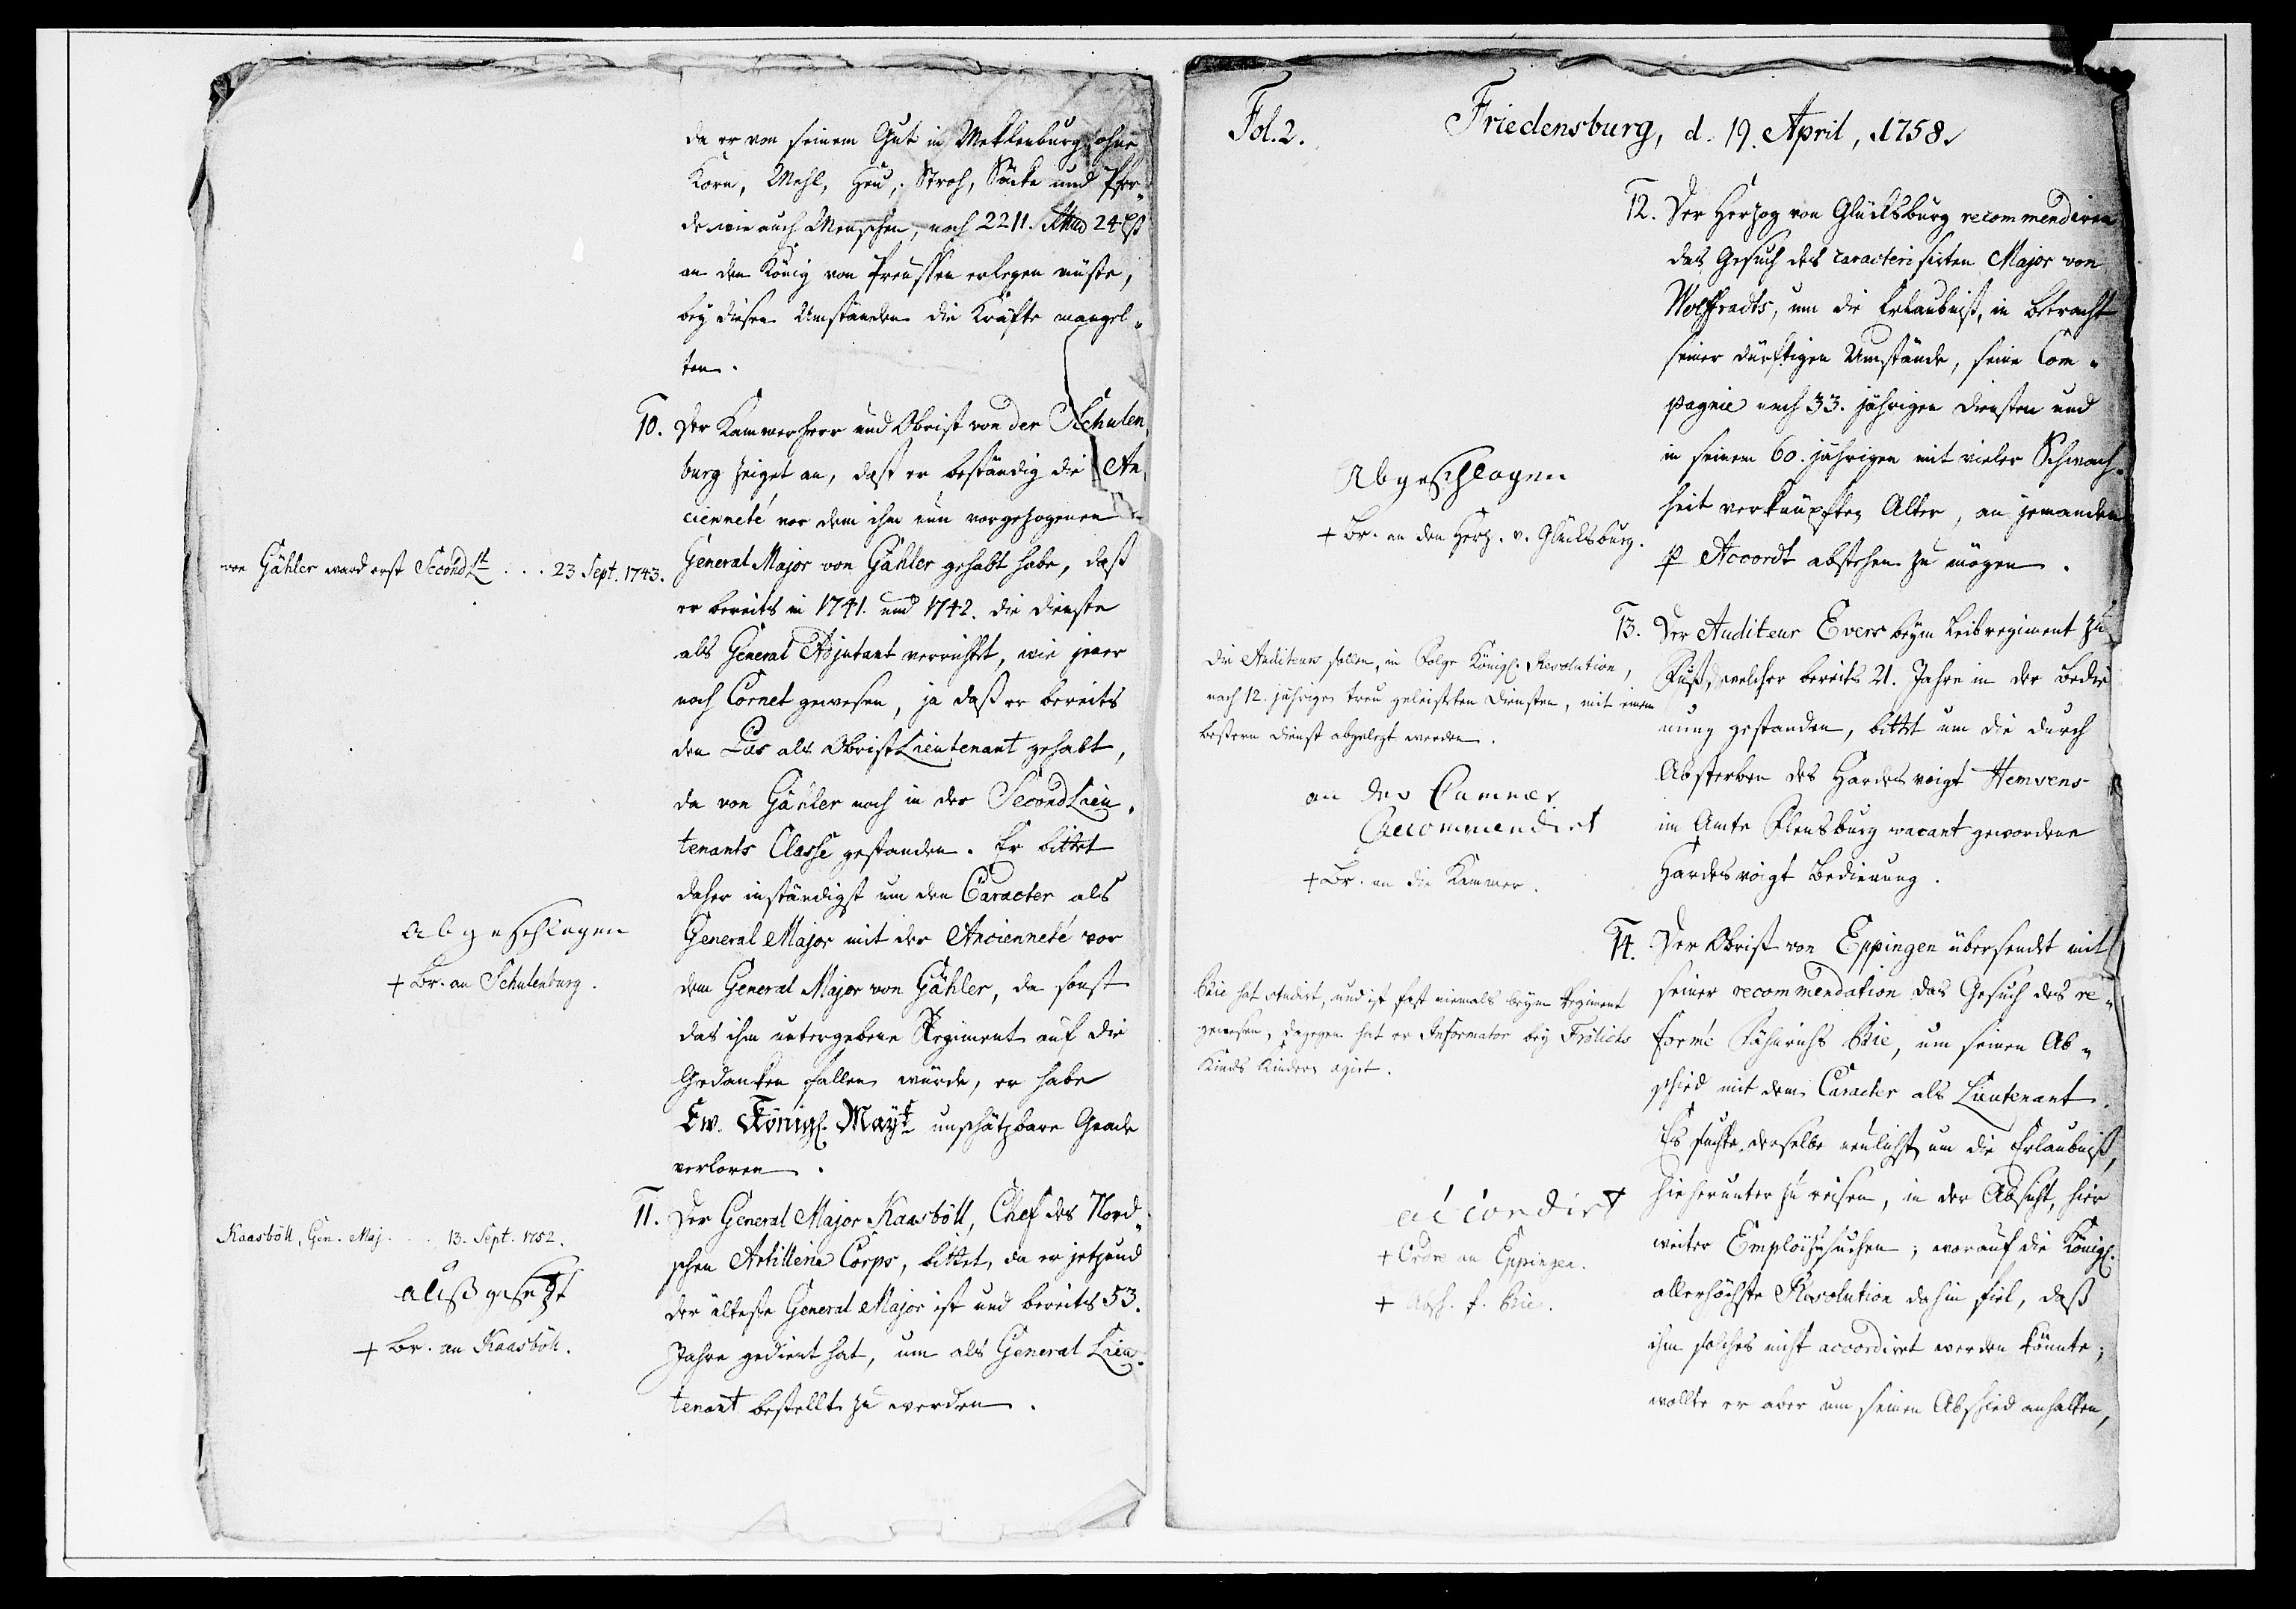 da er von seinem Gut in Meklenburg, ohne
Korn, Mehl, Heu, Stroh, Säcke und Pfer-
de wie auch Menschen, noch 2211. Rthlr 24 ßl
an den König von Preussen erlegen müste,
bey diesen Umständen die Kräfte mangel-
ten.
10. Der Kammerherr und Obrist von der Schulen-
burg zeiget an, dass er beständig die An-
cienneté vor dem ihm nun vorgezogenen
General Major von Gähler gehabt habe, dass
er bereits in 1741. und 1742. die Dienste
als General Adjutant verrichtet, wie jener
noch Cornet gewesen, ja dass er bereits
den Pas als Obrist Lieutenant gehabt,
da von Gähler noch in der Second Lieu-
tenants Classe gestanden. Er bittet
daher inständigst um den Caracter als
General Major mit der Ancienneté vor
dem General Major von Gähler, da sonst
das ihm untergebene Regiment auf die
Gedanken fallen würde, er habe
Ew. Königl. Mayt. unschätzbare Gnade
verloren.
von Gähler ward erst Second Lt. . . . 23 Sept. 1743.
abgeschlagen
+ Br. an Schulenburg.
11. Der General Major Kaasböll, Chef des Nord-
schen Artillerie Corps, bittet, da er jetzund
der älteste General Major ist und bereits 53.
Jahre gedient hat, um als General Lieu-
tenant bestellt zu werden.
Kaasböll, Gen. Maj. . . . 13. Sept. 1752.
außgesetzt
+ Br. an Kaasböll.
Fol. 2.
Friedensburg, d. 19. April, 1758.
12. Der Herzog von Glücksburg recommendiren
das Gesuch des caracterisirten Major von
Wolffradts, um die Erlaubniß, in Betracht
seiner dürftigen Umstände, seine Com-
pagnie nach 33. jährigen Diensten und
in seinem 60. jährigen mit vieler Schwach-
heit verknüpften Alter, an jemanden
p Accordt abstehen zu mögen.
Abgeschlagen
+ Br. an den Herz. v. Glücksburg.
13. Der Auditeur Evers beym Leibregiment zu
Fuß, welcher bereits 21. Jahre in der Bedie-
nung gestanden, bittet um die durch
Absterben des Hardesvoigt Hemsens
im Amte Flensburg vacant gewordene
Hardesvoigt Bedienung.
Die Auditeurs sollen, in Folge Königl. Resolution,
nach 12. jähriger treu geleisteten Diensten, mit einem
bessern Dienst abgelegt werden.
an der Cammer
Recommendirt
+ Br. an die Kammer.
14. Der Obrist von Eppingen übersendet mit
seiner recommendation das Gesuch des re-
formé Fähnrichs Brie, um seinen Ab-
schied mit dem Caracter als Lieutenant.
Es suchte derselbe neulichst um die Erlaubniß,
hieherunter zu reisen, in der Absicht, hier
weiter Emploi zu suchen; worauf die Königl.
allerhöchste Resolution dahin fiel, daß
ihm solches nicht accordiret werden könnte;
wollte er aber um seinen Abschied anhalten,
Brie hat studirt, und ist fast niemals beym Regiment
gewesen, dagegen hat er Informator bey Frölichs
Kinds Kindern agirt.
accordirt
+ Ordre an Eppingen.
+ Absch. f. Brie.